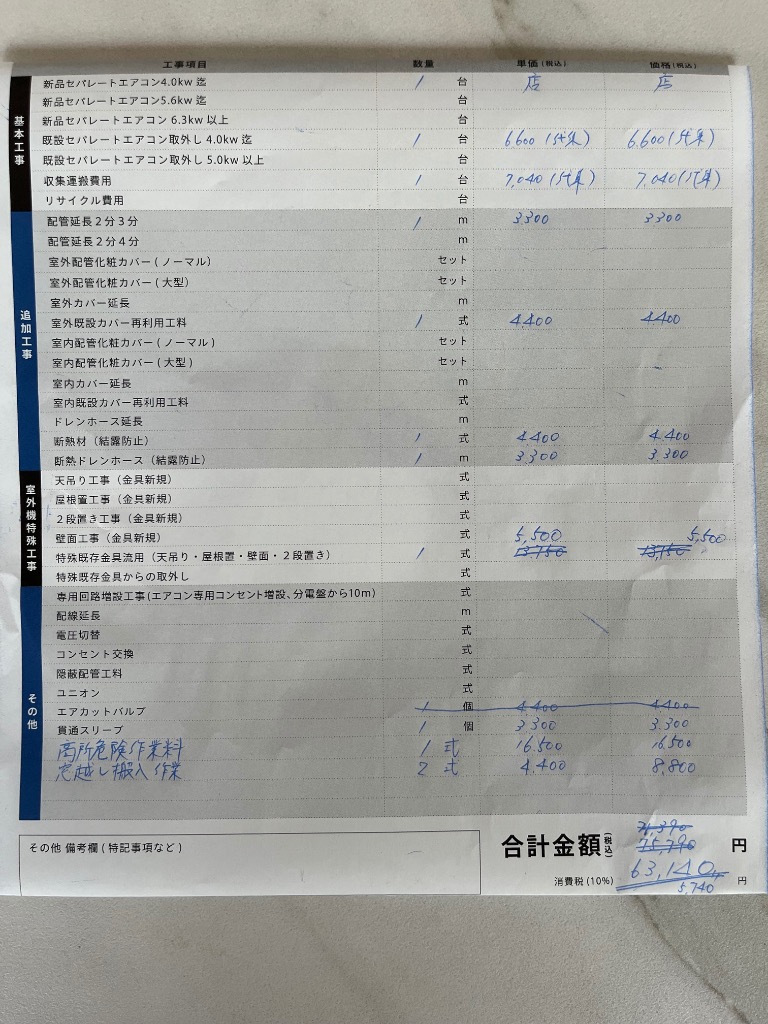 工事項目 数量 単価(税込) 価格(税込)
基本工事
新品セパレートエアコン4.0kw 迄 1 台 店 店
新品セパレートエアコン5.6kw 迄 台
新品セパレートエアコン 6.3kw 以上 台
既設セパレートエアコン取外し 4.0kw 迄 1 台 6.600(代集) 6.600(代集)
既設セパレートエアコン取外し 5.0kw 以上 台
収集運搬費用 1 台 7.040(代集) 7.040(代集)
リサイクル費用 台
追加工事
配管延長2分3分 1 m 3.300 3300
配管延長2分4分 m
室外配管化粧カバー(ノーマル) セット
室外配管化粧カバー(大型) セット
室外カバー延長 m
室外既設カバー再利用工料 1 式 4.400 4.400
室内配管化粧カバー(ノーマル) セット
室内配管化粧カバー(大型) セット
室内カバー延長 m
室内既設カバー再利用工料 式
ドレンホース延長 m
断熱材(結露防止) 1 式 4.400 4.400
断熱ドレンホース(結露防止) 1 m 3.300 3.300
室外機特殊工事
天吊り工事(金具新規) 式
屋根置工事(金具新規) 式
2段置き工事(金具新規) 式
壁面工事(金具新規) 式 5,500 5,500
特殊既存金具流用(天吊り・屋根置・壁面・2段置き) 1 式 13,750 13,750
特殊既存金具からの取外し 式
その他
専用回路増設工事(エアコン専用コンセント増設、分電盤から10m) 式
配線延長 m
電圧切替 式
コンセント交換 式
隠蔽配管工料 式
ユニオン 式
エアカットバルブ 1 個 4.400 4.400
貫通スリーブ 1 個 3.300 3.300
高所危険作業料 1 式 16.500 16.500
窓越し搬入作業 2 式 4.400 8,800
その他 備考欄(特記事項など)
合計金額(税込) 71,390 円
75,790
63,140
消費税(10%) 5,740 円